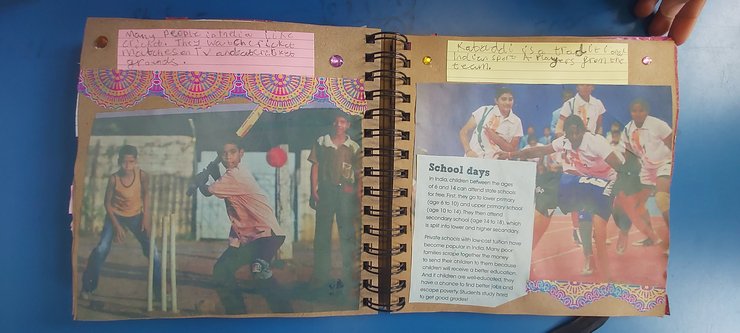 Many people in India like
cricket. They watch cricket
matches on TV and at cricket
grounds.
Kabaddi is a traditional
Indian sport. A players from the
team.
School days
In India, children between the ages
of 6 and 14 can attend state schools
for free. First, they go to lower primary
(age 6 to 10) and upper primary school
(age 10 to 14). They then attend
secondary school (age 14 to 18), which
is split into lower and higher secondary.
Private schools with low-cost tuition have
become popular in India. Many poor
families scrape together the money
to send their children to them because
children will receive a better education.
And if children are well-educated, they
have a chance to find better jobs and
escape poverty. Students study hard
to get good grades!